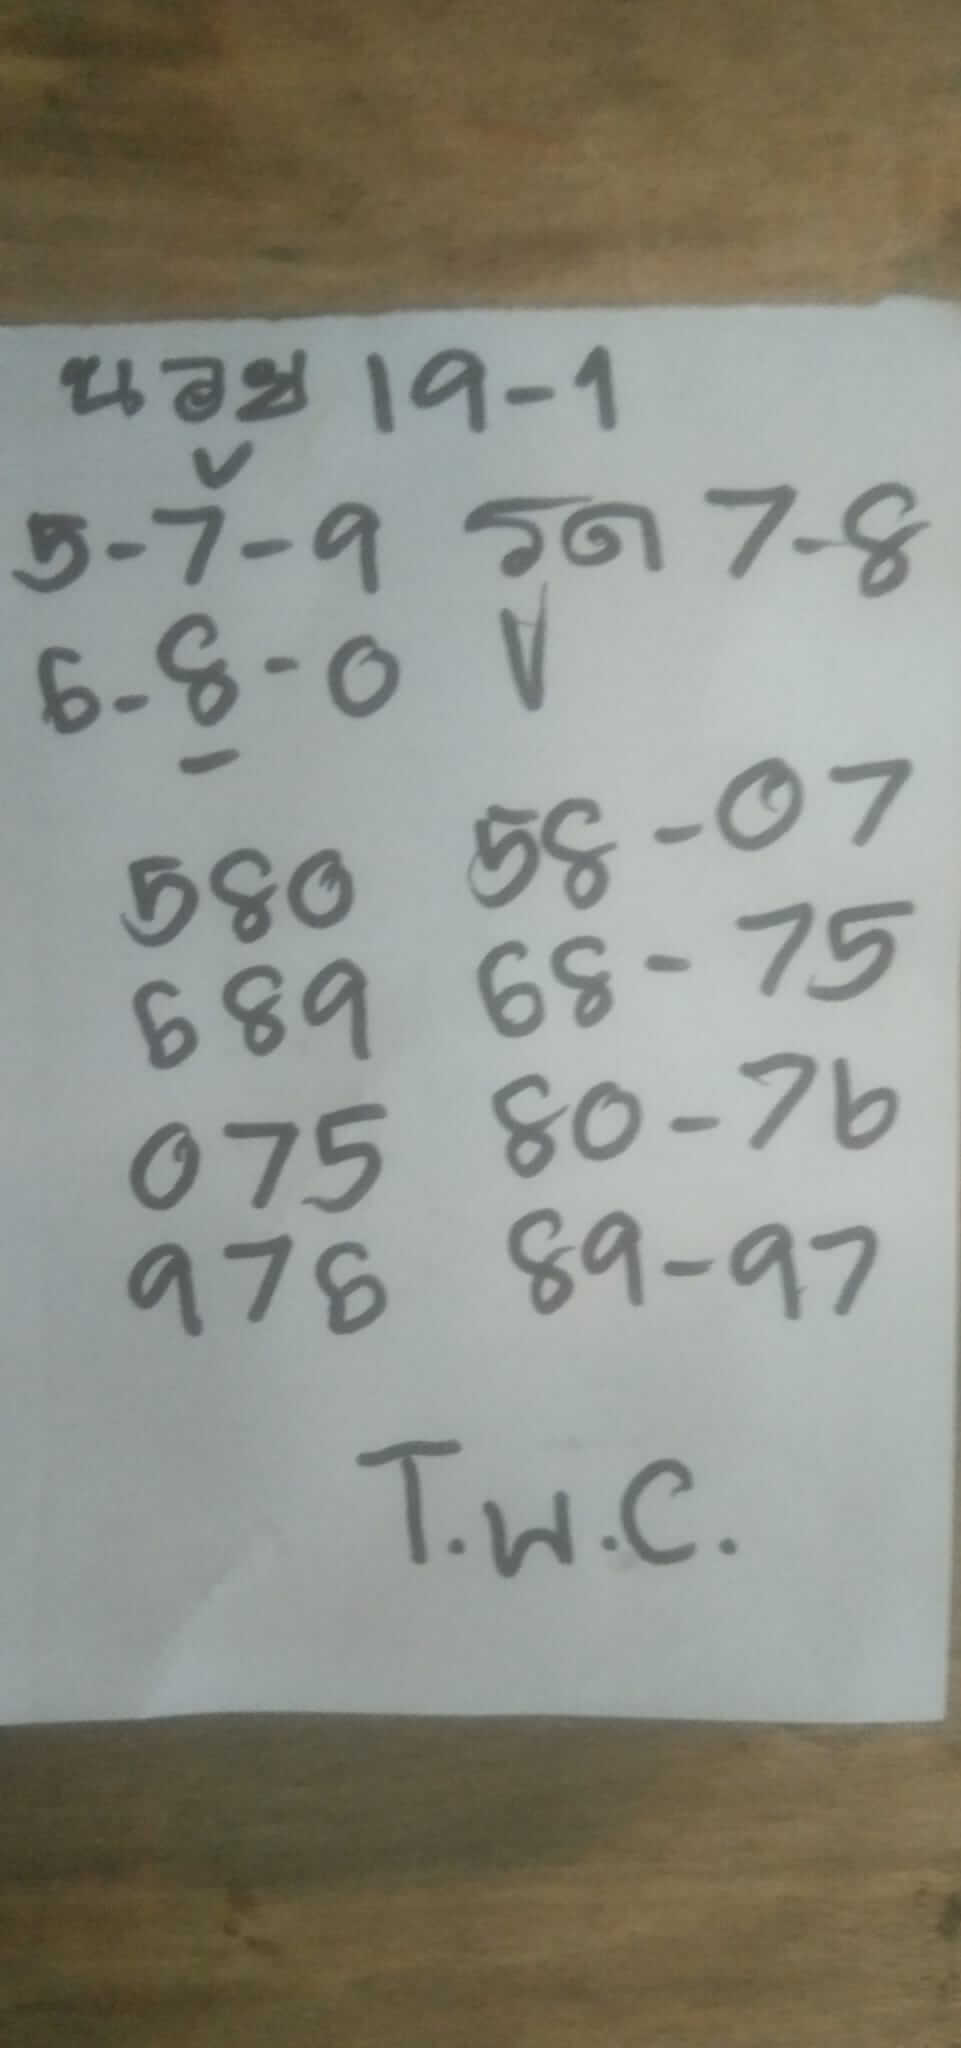 นอย 19-1
5-7-9 รูด 7-8
6-8-0
580 58-07
689 68-75
075 80-76
976 89-97
T.W.C.